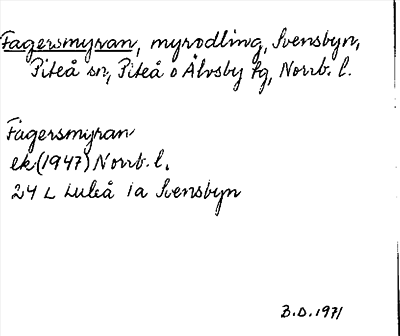 Fagersmyran, myrodling, Svensbyn,
Piteå sn, Piteå o Älvsby fg, Norrb. l.
Fagersmyran
ek (1947) Norrb. l.
24 L Luleå 1a Svensbyn
B.D. 1971